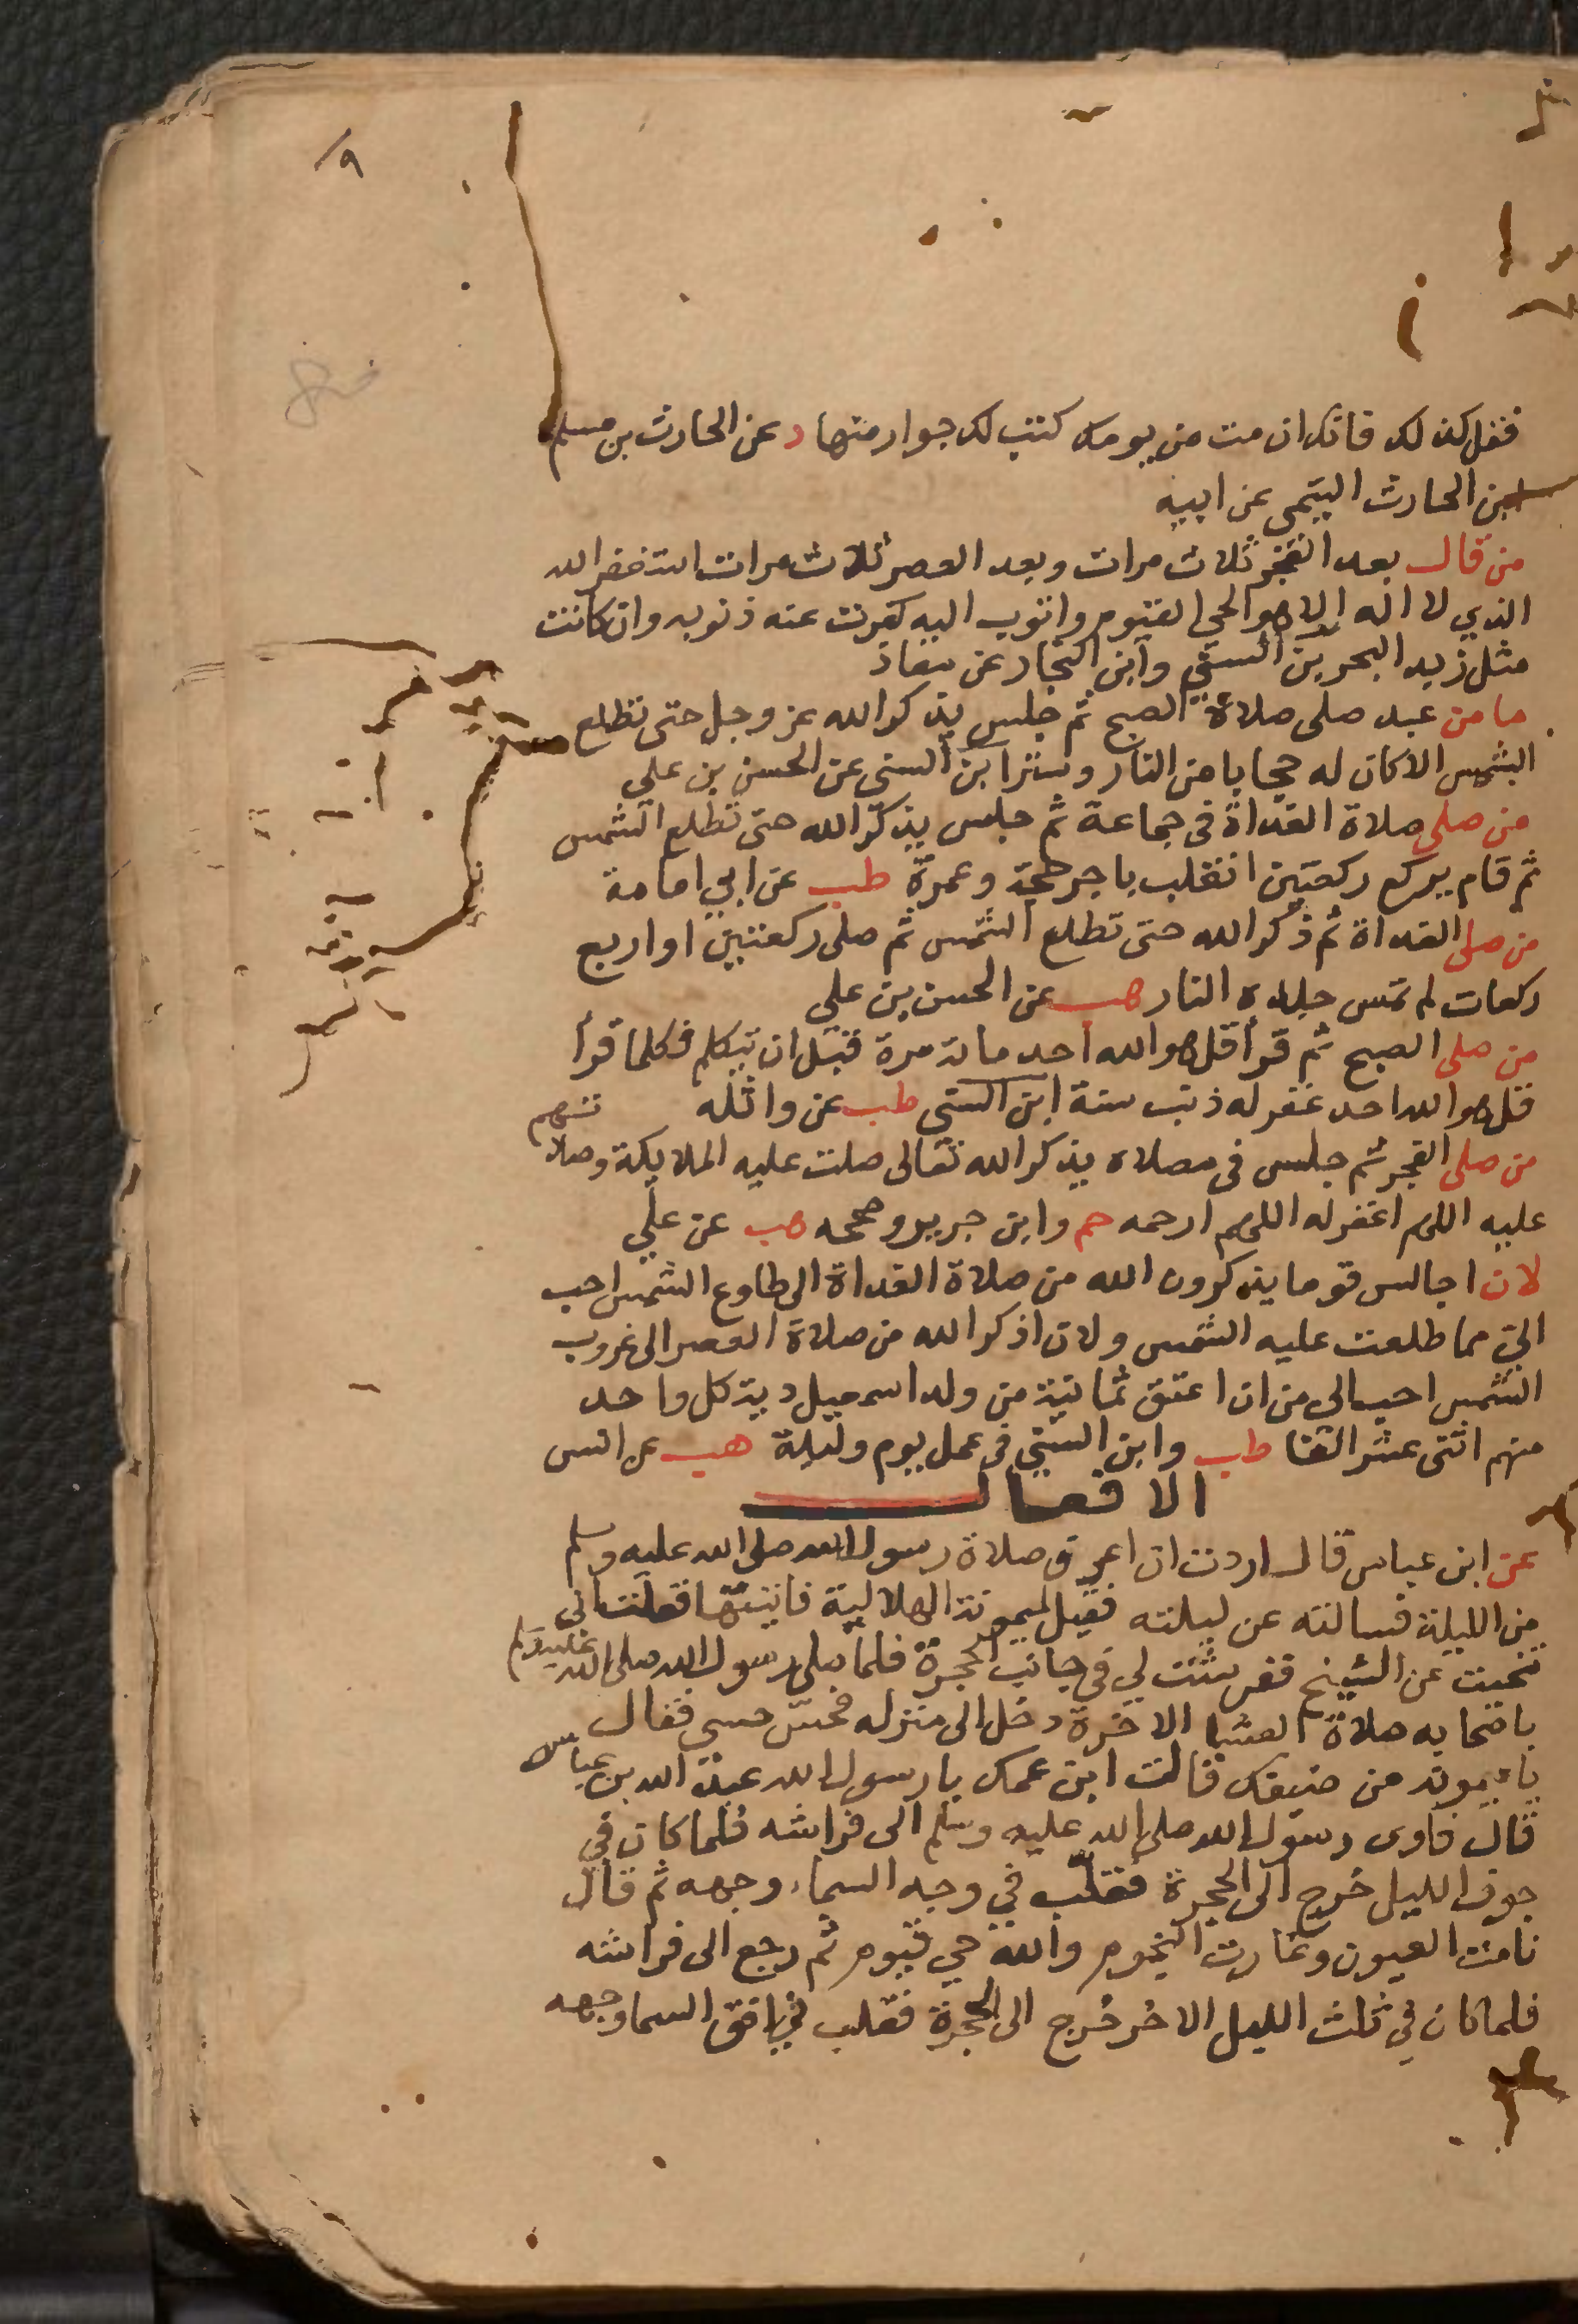 ٩
فقل كذلك فانك ان مت من يومك كتب لك جوار منها د عن الحارث بن مسلم
بن الحارث التيمي عن ابيه
من قال بعد الفجر ثلاث مرات وبعد العصر ثلاث مرات استغفر الله
الذي لا اله الا هو الحي القيوم واتوب اليه كفرت عنه ذنوبه وان كانت
مثل زبد البحر بن السني وابن النجار عن معاذ
ما من عبد صلى صلاة الصبح ثم جلس يذكر الله عز وجل حتى تطلع
الشمس الا كان له حجابا من النار وستر ابن السني عن الحسن بن علي
من صلى صلاة الغداة في جماعة ثم جلس يذكر الله حتى تطلع الشمس
ثم قام يركع ركعتين انقلب باجر حجة وعمرة طب عن ابي امامة
من صلى الغداة ثم ذكر الله حتى تطلع الشمس ثم صلى ركعتين او اربع
ركعات لم تمس جلده النار هب عن الحسن بن علي
من صلى الصبح ثم قرأ قل هو الله احد ماية مرة قبل ان يتكلم فكلما قرأ
قل هو الله احد غفر له ذنب سنة ابن السني طب عن واثله
من صلى الفجر ثم جلس في مصلاه يذكر الله تعالى صلت عليه الملايكة وصلاتهم
عليه اللهم اغفر له اللهم ارحمه حم وابن جرير وصححه هب عن علي
لان اجالس قوما يذكرون الله من صلاة الغداة الى طلوع الشمس احب
الي مما طلعت عليه الشمس ولان اذكر الله من صلاة العصر الى غروب
الشمس احب الي من ان اعتق ثمانية من ولد اسمعيل دية كل واحد
منهم اثنى عشر الفا طب وابن السني في عمل يوم وليلة هب عن انس
الافعال
عن ابن عباس قال اردت ان اعرف صلاة رسول الله صلى الله عليه وسلم
من الليلة فسالته عن ليلته فقيل لميمونة الهلالية فاتيتها فقلت اني
تنحيت عن الشيخ ففرشت لي في جانب الحجرة فلما صلى رسول الله صلى الله عليه وسلم
باصحابه صلاة العشا الاخرة دخل الى منزله فحس حسي فقال
يا ميمونة من ضيفك قالت ابن عمك يا رسول الله عبد الله بن عباس
قال فاوى رسول الله صلى الله عليه وسلم الى فراشه فلما كان في
جوف الليل خرج الى الحجرة فقلب في وجه السماء وجهه ثم قال
نامت العيون وغارت النجوم والله حي قيوم ثم رجع الى فراشه
فلما كان في ثلث الليل الاخر خرج الى الحجرة فقلب في افق السما وجهه